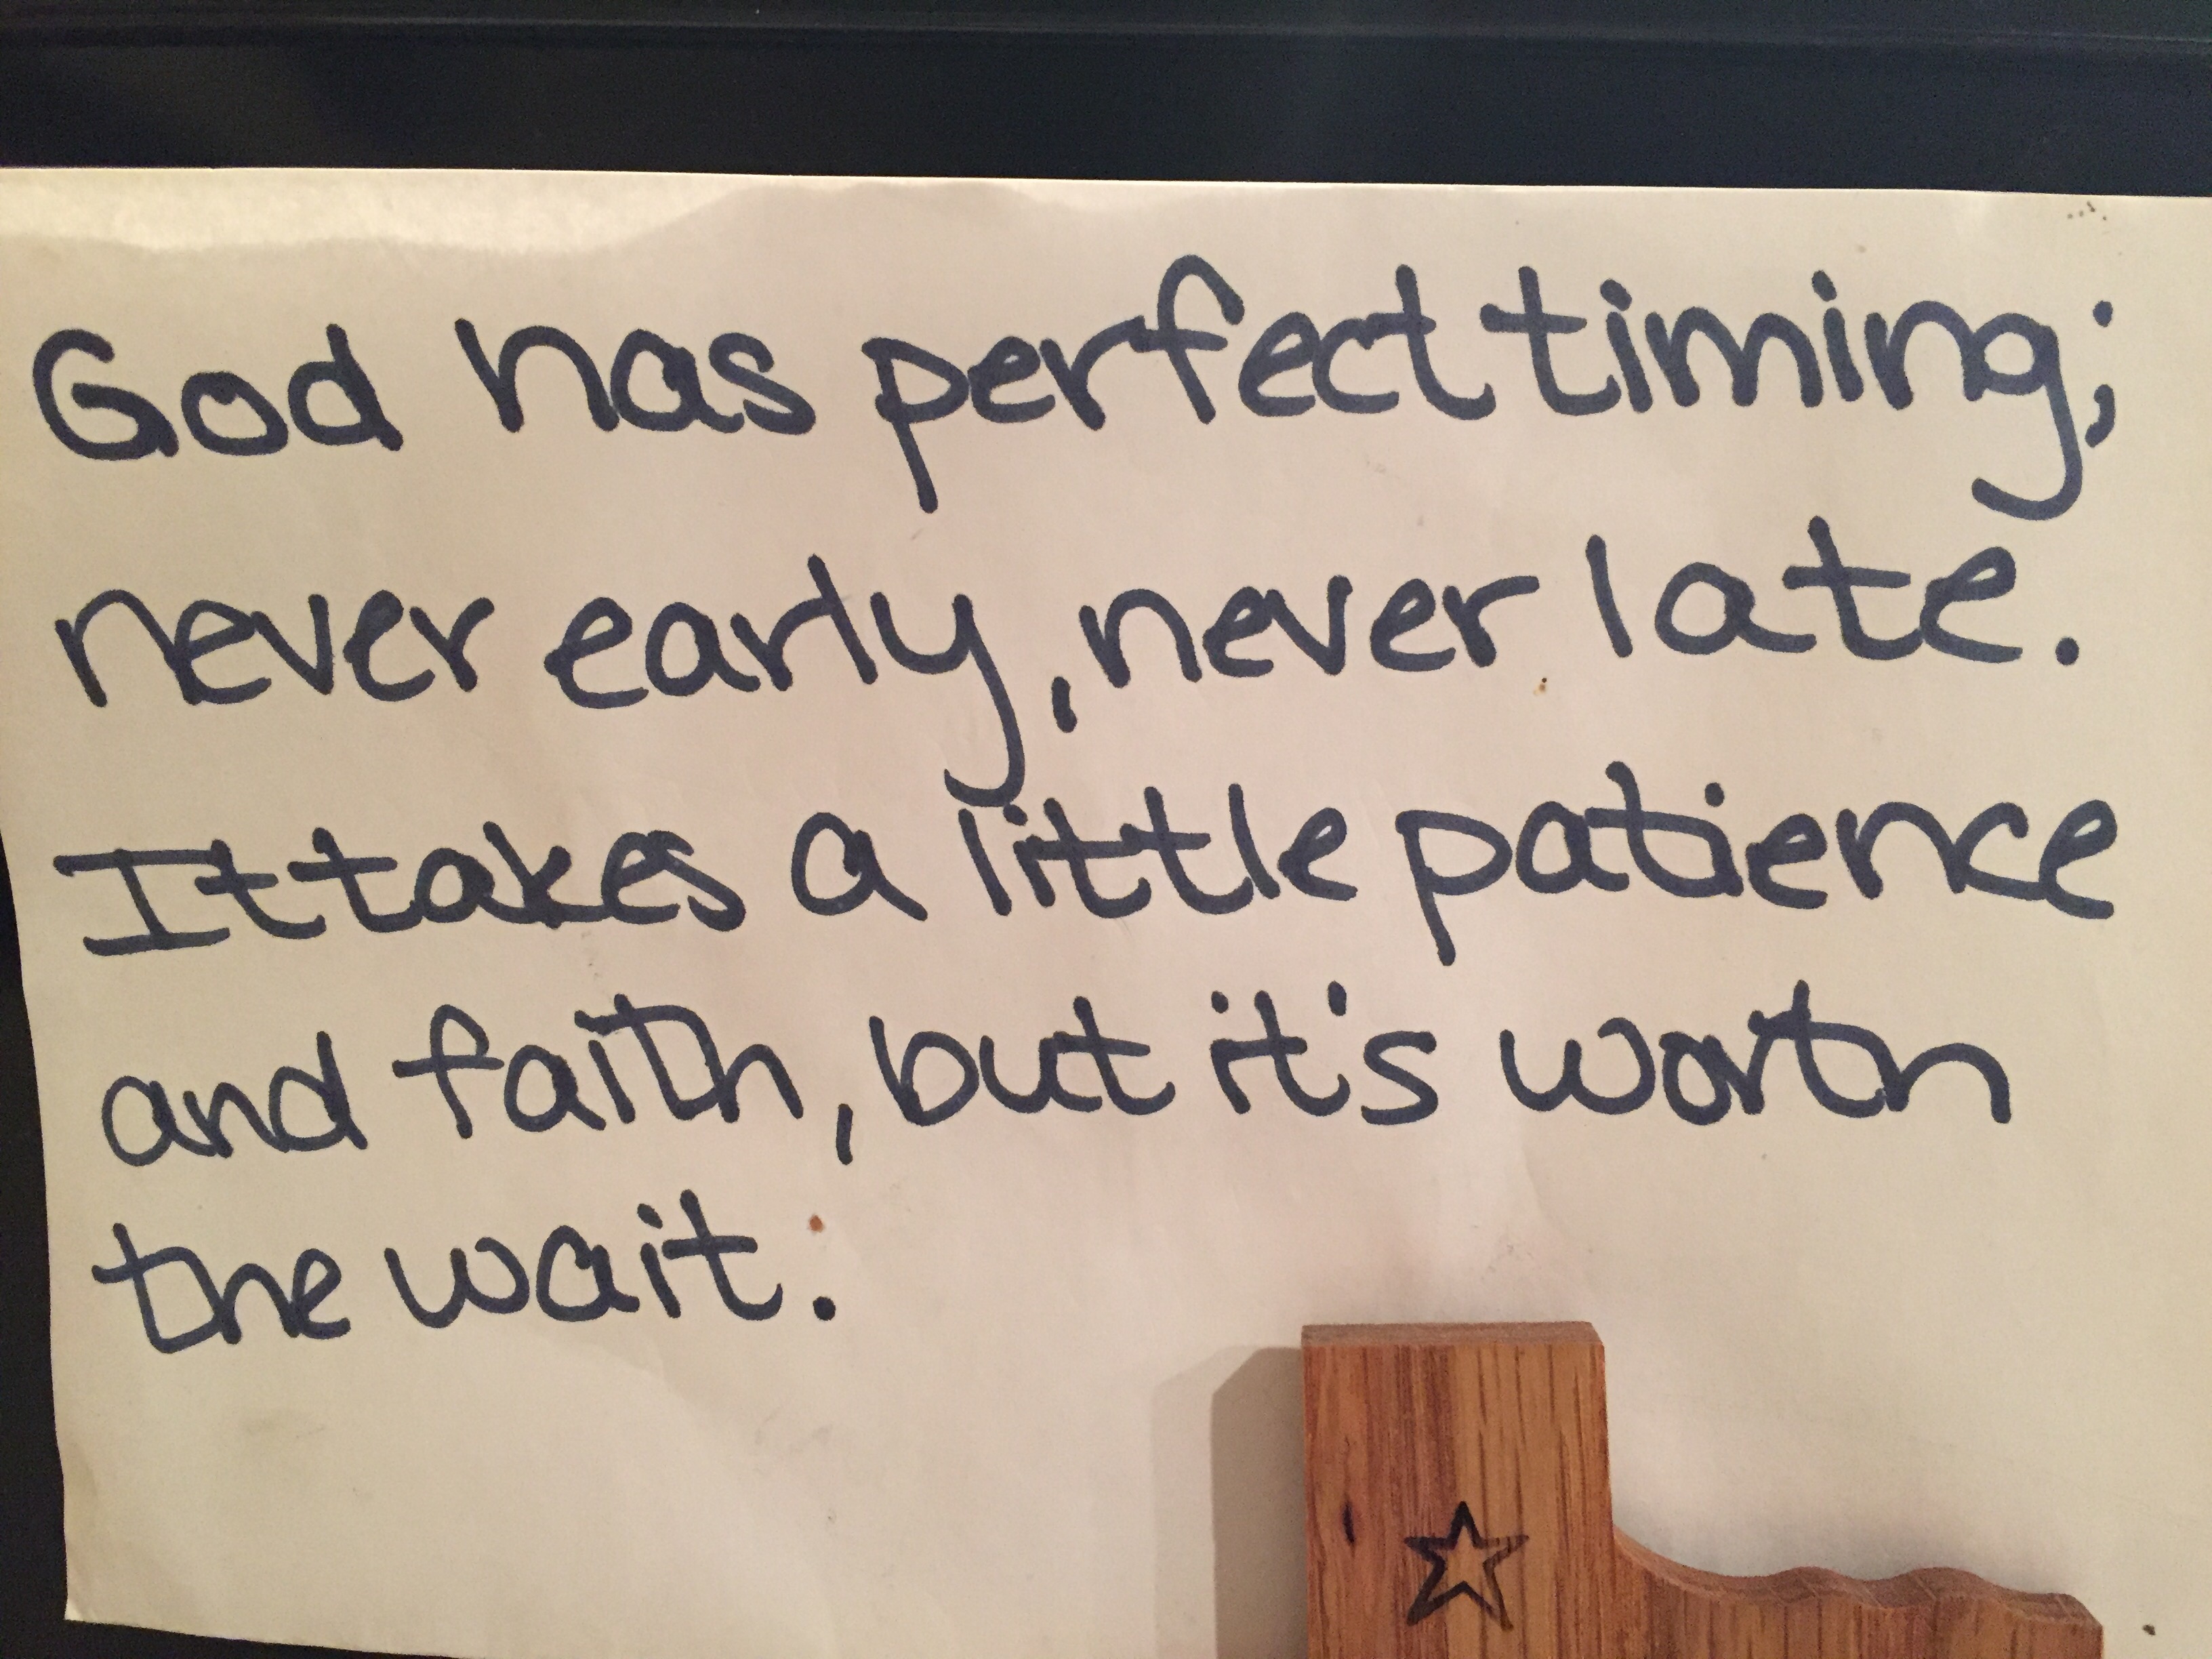 God has perfect timing;
never early, never late.
It takes a little patience
and faith, but it's worth
the wait.